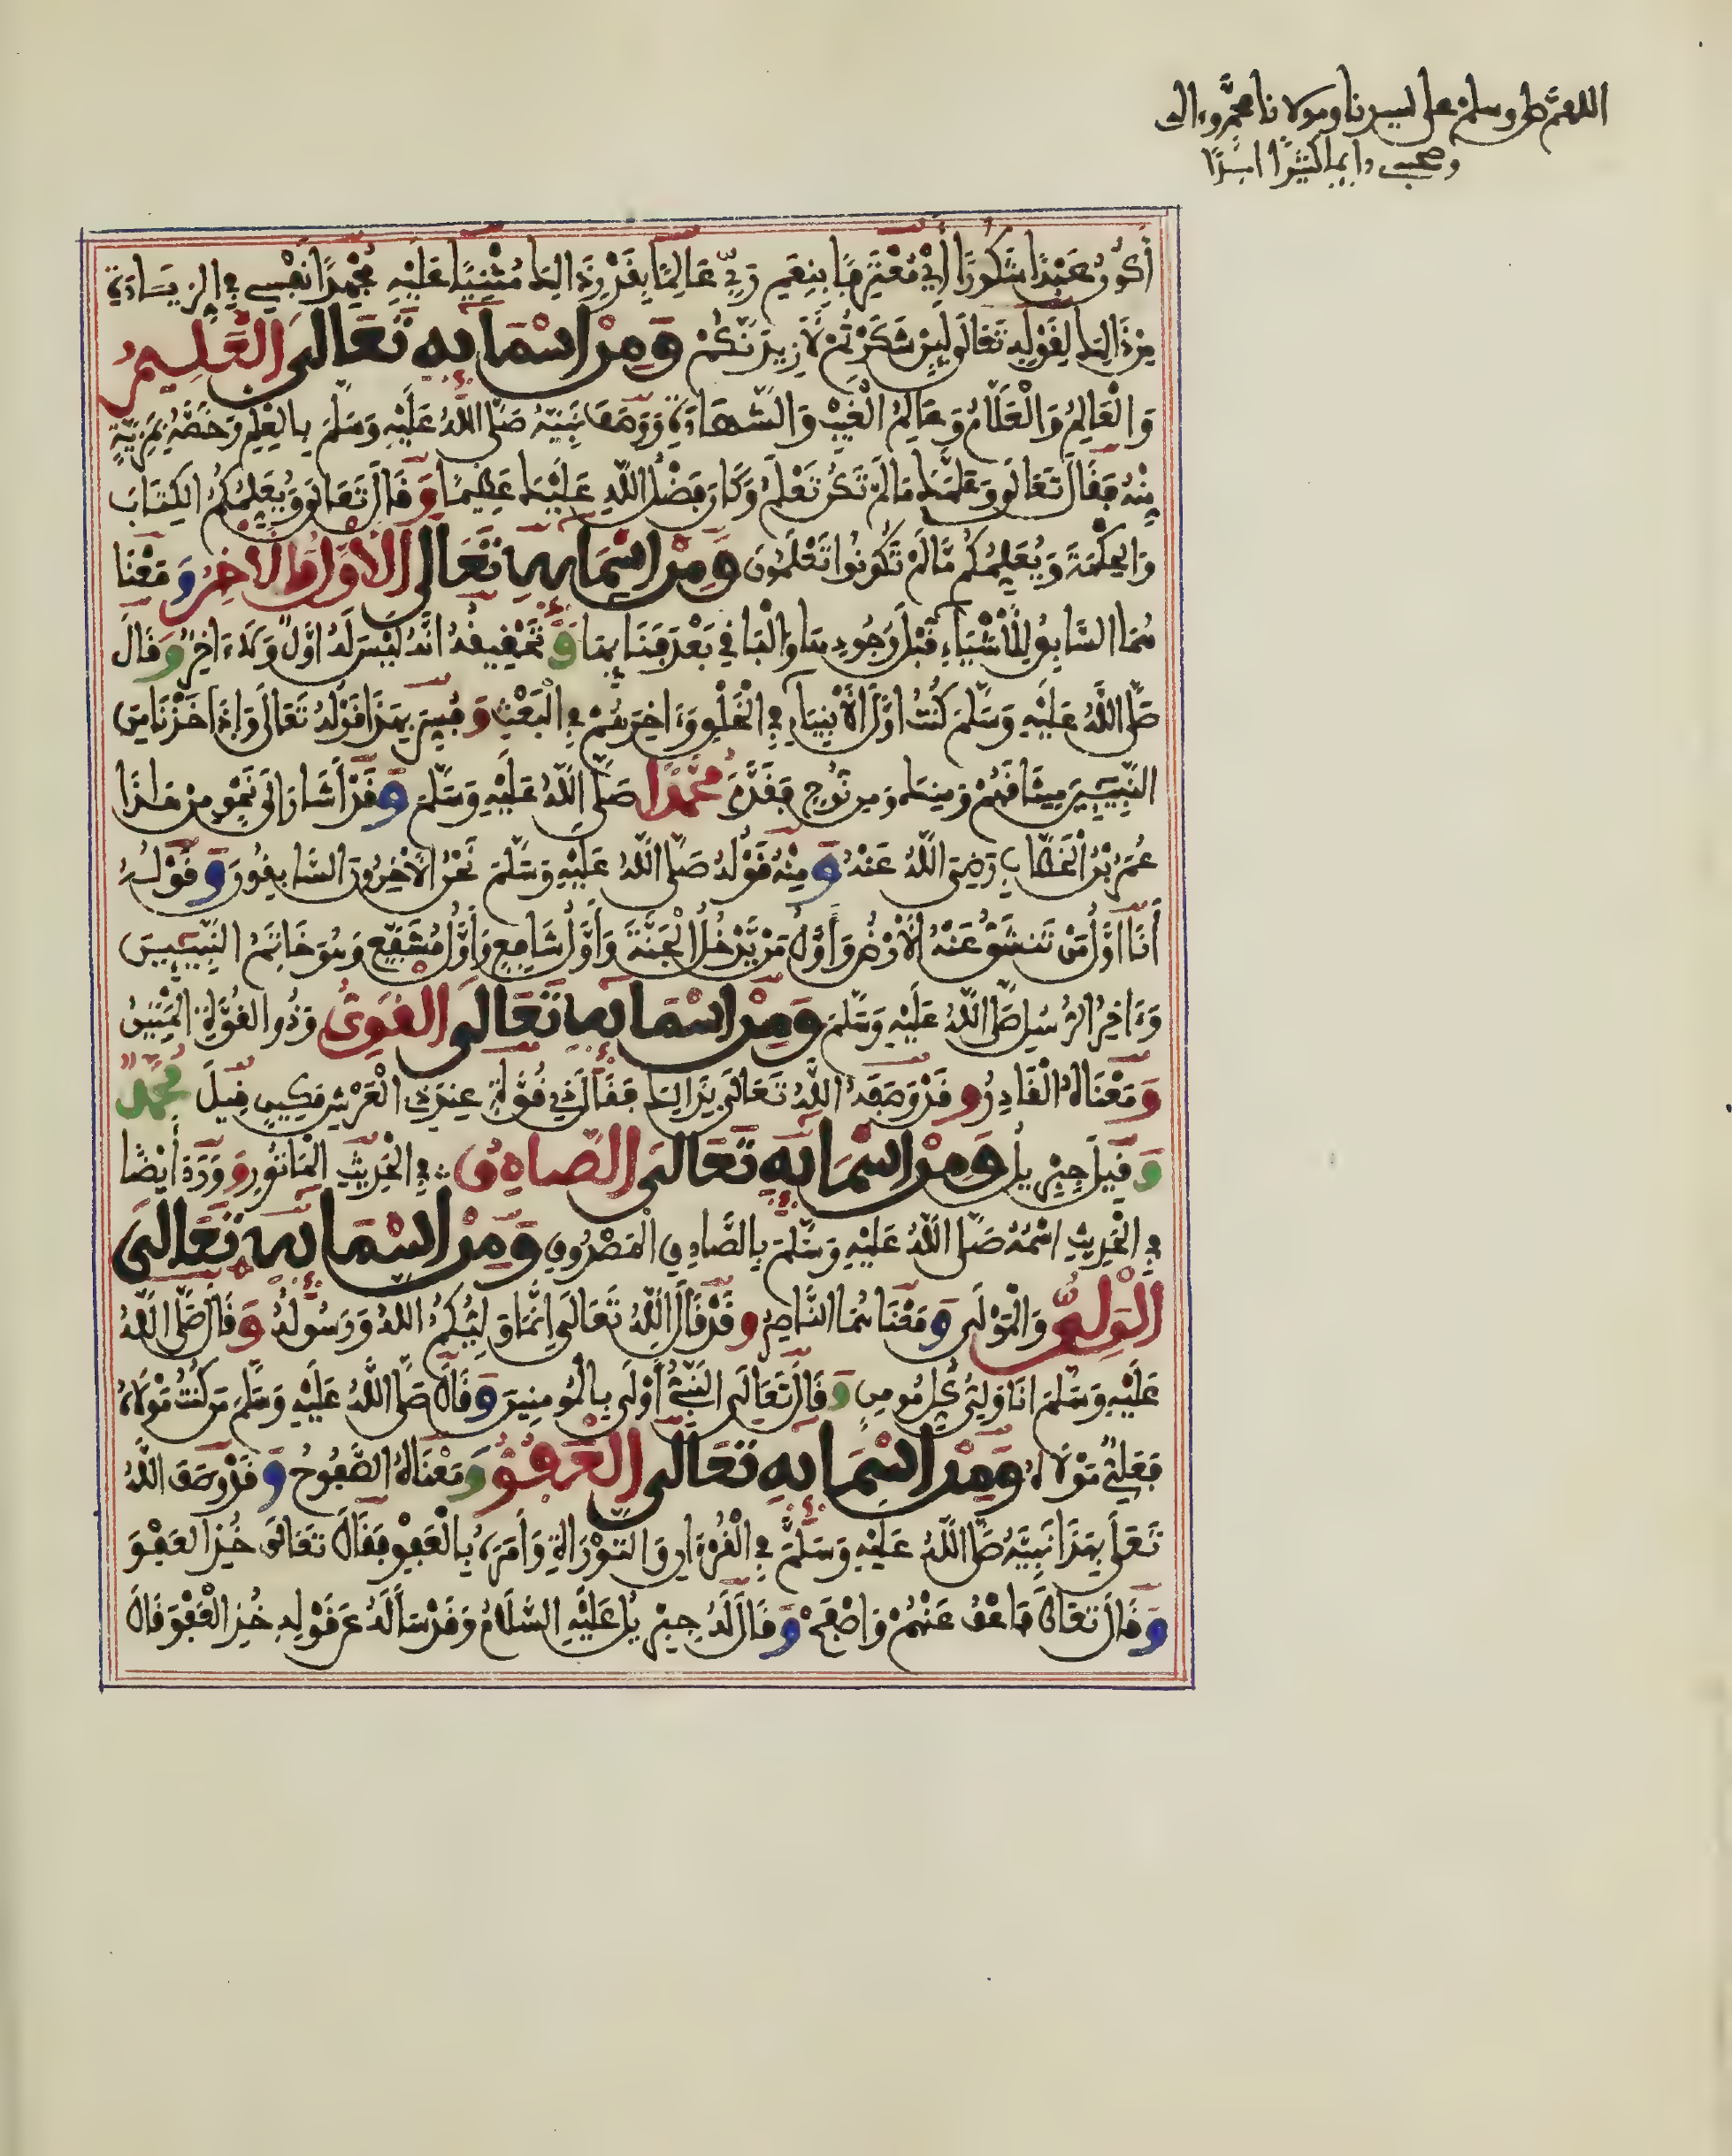 اللهم صل وسلم على سيدنا ومولانا محمد وءاله
وصحبه دايما كثيرا ابدا
أَكُونُ عَبْدًا شَكُورًا أَيْ مُعْتَرِفًا بِنِعَمِ رَبِّي عَالِمًا بِقَدْرِ ذَالِكَ مُثْنِيًا عَلَيْهِ مُجْهِدًا نَفْسِي فِي الزِّيَادَةِ
مِن ذَالِكَ لِقَوْلِهِ تَعَالَى لَئِن شَكَرْتُمْ لَأَزِيدَنَّكُمْ وَمِنْ اسْمَائِهِ تَعَالَى الْعَلِيمُ
وَالْعَالِمُ وَالْعَلَّامُ وَعَالِمُ الْغَيْبِ وَالشَّهَادَةِ وَوَصَفَ نَبِيَّهُ صَلَّى اللَّهُ عَلَيْهِ وَسَلَّمَ بِالْعِلْمِ وَخَصَّهُ بِمَزِيَّةٍ
مِنْهُ فَقَالَ تَعَالَى وَعَلَّمَكَ مَا لَمْ تَكُن تَعْلَمُ وَكَانَ فَضْلُ اللَّهِ عَلَيْكَ عَظِيمًا وَقَالَ تَعَالَى وَيُعَلِّمُكُمُ الْكِتَابَ
وَالْحِكْمَةَ وَيُعَلِّمُكُم مَّا لَمْ تَكُونُوا تَعْلَمُونَ وَمِنْ اسْمَائِهِ تَعَالَى الْأَوَّلُ وَالْآخِرُ وَمَعْنَا
هُمَا السَّابِقُ لِلْأَشْيَاءِ قَبْلَ وُجُودِهَا وَالْبَاقِي بَعْدَ فَنَائِهَا وَتَحْقِيقُهُ انَّهُ لَيْسَ لَهُ اوَّلٌ وَلَا ءَاخِرٌ وَقَالَ
صَلَّى اللَّهُ عَلَيْهِ وَسَلَّمَ كُنْتُ اوَّلَ الْأَنْبِيَاءِ فِي الْخَلْقِ وَءَاخِرَهُمْ فِي الْبَعْثِ وَفُسِّرَ بِهَذَا قَوْلُهُ تَعَالَى وَإِذَ اخَذْنَا مِنَ
النَّبِيِّينَ مِيثَاقَهُمْ وَمِنكَ وَمِن نُّوحٍ فَقَدَّمَ مُحَمَّدًا صَلَّى اللَّهُ عَلَيْهِ وَسَلَّمَ وَقَدْ أَشَارَ الَى نَحْوٍ مِنْ هَذَا
عُمَرُ بْنُ الْخَطَّابِ رَضِيَ اللَّهُ عَنْهُ وَمِنْهُ قَوْلُهُ صَلَّى اللَّهُ عَلَيْهِ وَسَلَّمَ نَحْنُ الْآخِرُونَ السَّابِقُونَ وَقَوْلُهُ
أَنَا اوَّلُ مَن تَنشَقُّ عَنْهُ الْأَرْضُ وَأَوَّلُ مَن يَّدْخُلُ الْجَنَّةَ وَأَوَّلُ شَافِعٍ وَأَوَّلُ مُشَفَّعٍ وَهُوَ خَاتِمُ النَّبِيِّينَ
وَءَاخِرُ الرُّسُلِ صَلَّى اللَّهُ عَلَيْهِ وَسَلَّمَ وَمِنْ اسْمَائِهِ تَعَالَى الْقَوِيُّ وَذُو الْقُوَّةِ الْمَتِينُ
وَمَعْنَاهُ الْقَادِرُ وَقَدْ وَصَفَهُ اللَّهُ تَعَالَى بِذَالِكَ فَقَالَ ذِي قُوَّةٍ عِندَ ذِي الْعَرْشِ مَكِينٍ قِيلَ مُحَمَّدٌ
وَقِيلَ جِبْرِيلُ وَمِنْ اسْمَائِهِ تَعَالَى الصَّادِقُ فِي الْحَدِيثِ الْمَاثُورِ وَوَرَدَ أَيْضًا
فِي الْحَدِيثِ اسْمُهُ صَلَّى اللَّهُ عَلَيْهِ وَسَلَّمَ بِالصَّادِقِ الْمَصْدُوقِ وَمِنْ اسْمَائِهِ تَعَالَى
الْوَلِيُّ وَالْمَوْلَى وَمَعْنَاهُمَا النَّاصِرُ وَقَدْ قَالَ اللَّهُ تَعَالَى إِنَّمَا وَلِيُّكُمُ اللَّهُ وَرَسُولُهُ وَقَالَ صَلَّى اللَّهُ
عَلَيْهِ وَسَلَّمَ انَا وَلِيُّ كُلِّ مُومِنٍ وَقَالَ تَعَالَى النَّبِيُّ أَوْلَى بِالْمُومِنِينَ وَقَالَ صَلَّى اللَّهُ عَلَيْهِ وَسَلَّمَ مَن كُنْتُ مَوْلَاهُ
فَعَلِيٌّ مَوْلَاهُ وَمِنْ اسْمَائِهِ تَعَالَى الْعَفُوُّ وَمَعْنَاهُ الصَّفُوحُ وَقَدْ وَصَفَ اللَّهُ
تَعَلَى بِهَذَا نَبِيَّهُ صَلَّى اللَّهُ عَلَيْهِ وَسَلَّمَ فِي الْقُرْءَانِ وَالتَّوْرَاةِ وَأَمَرَهُ بِالْعَفْوِ فَقَالَ تَعَالَى خُذِ الْعَفْوَ
وَقَالَ تَعَالَى فَاعْفُ عَنْهُمْ وَاصْفَحْ وَقَالَ لَهُ جِبْرِيلُ عَلَيْهِ السَّلَامُ وَقَدْ سَأَلَهُ عَن قَوْلِهِ خُذِ الْعَفْوَ قَالَ